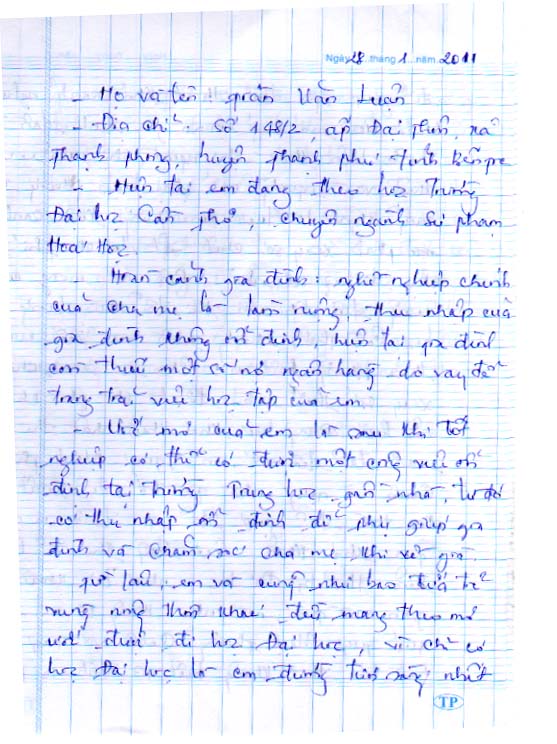 Ngày 28 tháng 1 năm 2011
- Họ và tên: Trần Văn Luận
- Địa chỉ: Số 148/2, ấp Đại Thôn, xã
Thạnh Phong, huyện Thạnh Phú tỉnh Bến Tre
- Hiện tại em đang theo học Trường
Đại học Cần Thơ, chuyên ngành Sư phạm
Hoá Học.
- Hoàn cảnh gia đình: nghề nghiệp chính
của cha mẹ là làm ruộng, thu nhập của
gia đình không ổn định, hiện tại gia đình
còn thiếu một số nợ ngân hàng do vay để
trang trải việc học tập của em.
- Ước mơ của em là sau khi tốt
nghiệp có thể có được một công việc ổn
định tại trường Trung học gần nhà, từ đó
có thu nhập ổn định để phụ giúp gia
đình và chăm sóc cha mẹ khi về già.
lâu, em và cũng như bao đứa trẻ
vùng nông thôn khác đều mang theo mơ
ước được đi học Đại học, vì chỉ có
học Đại học là con đường tươi sáng nhất
TP